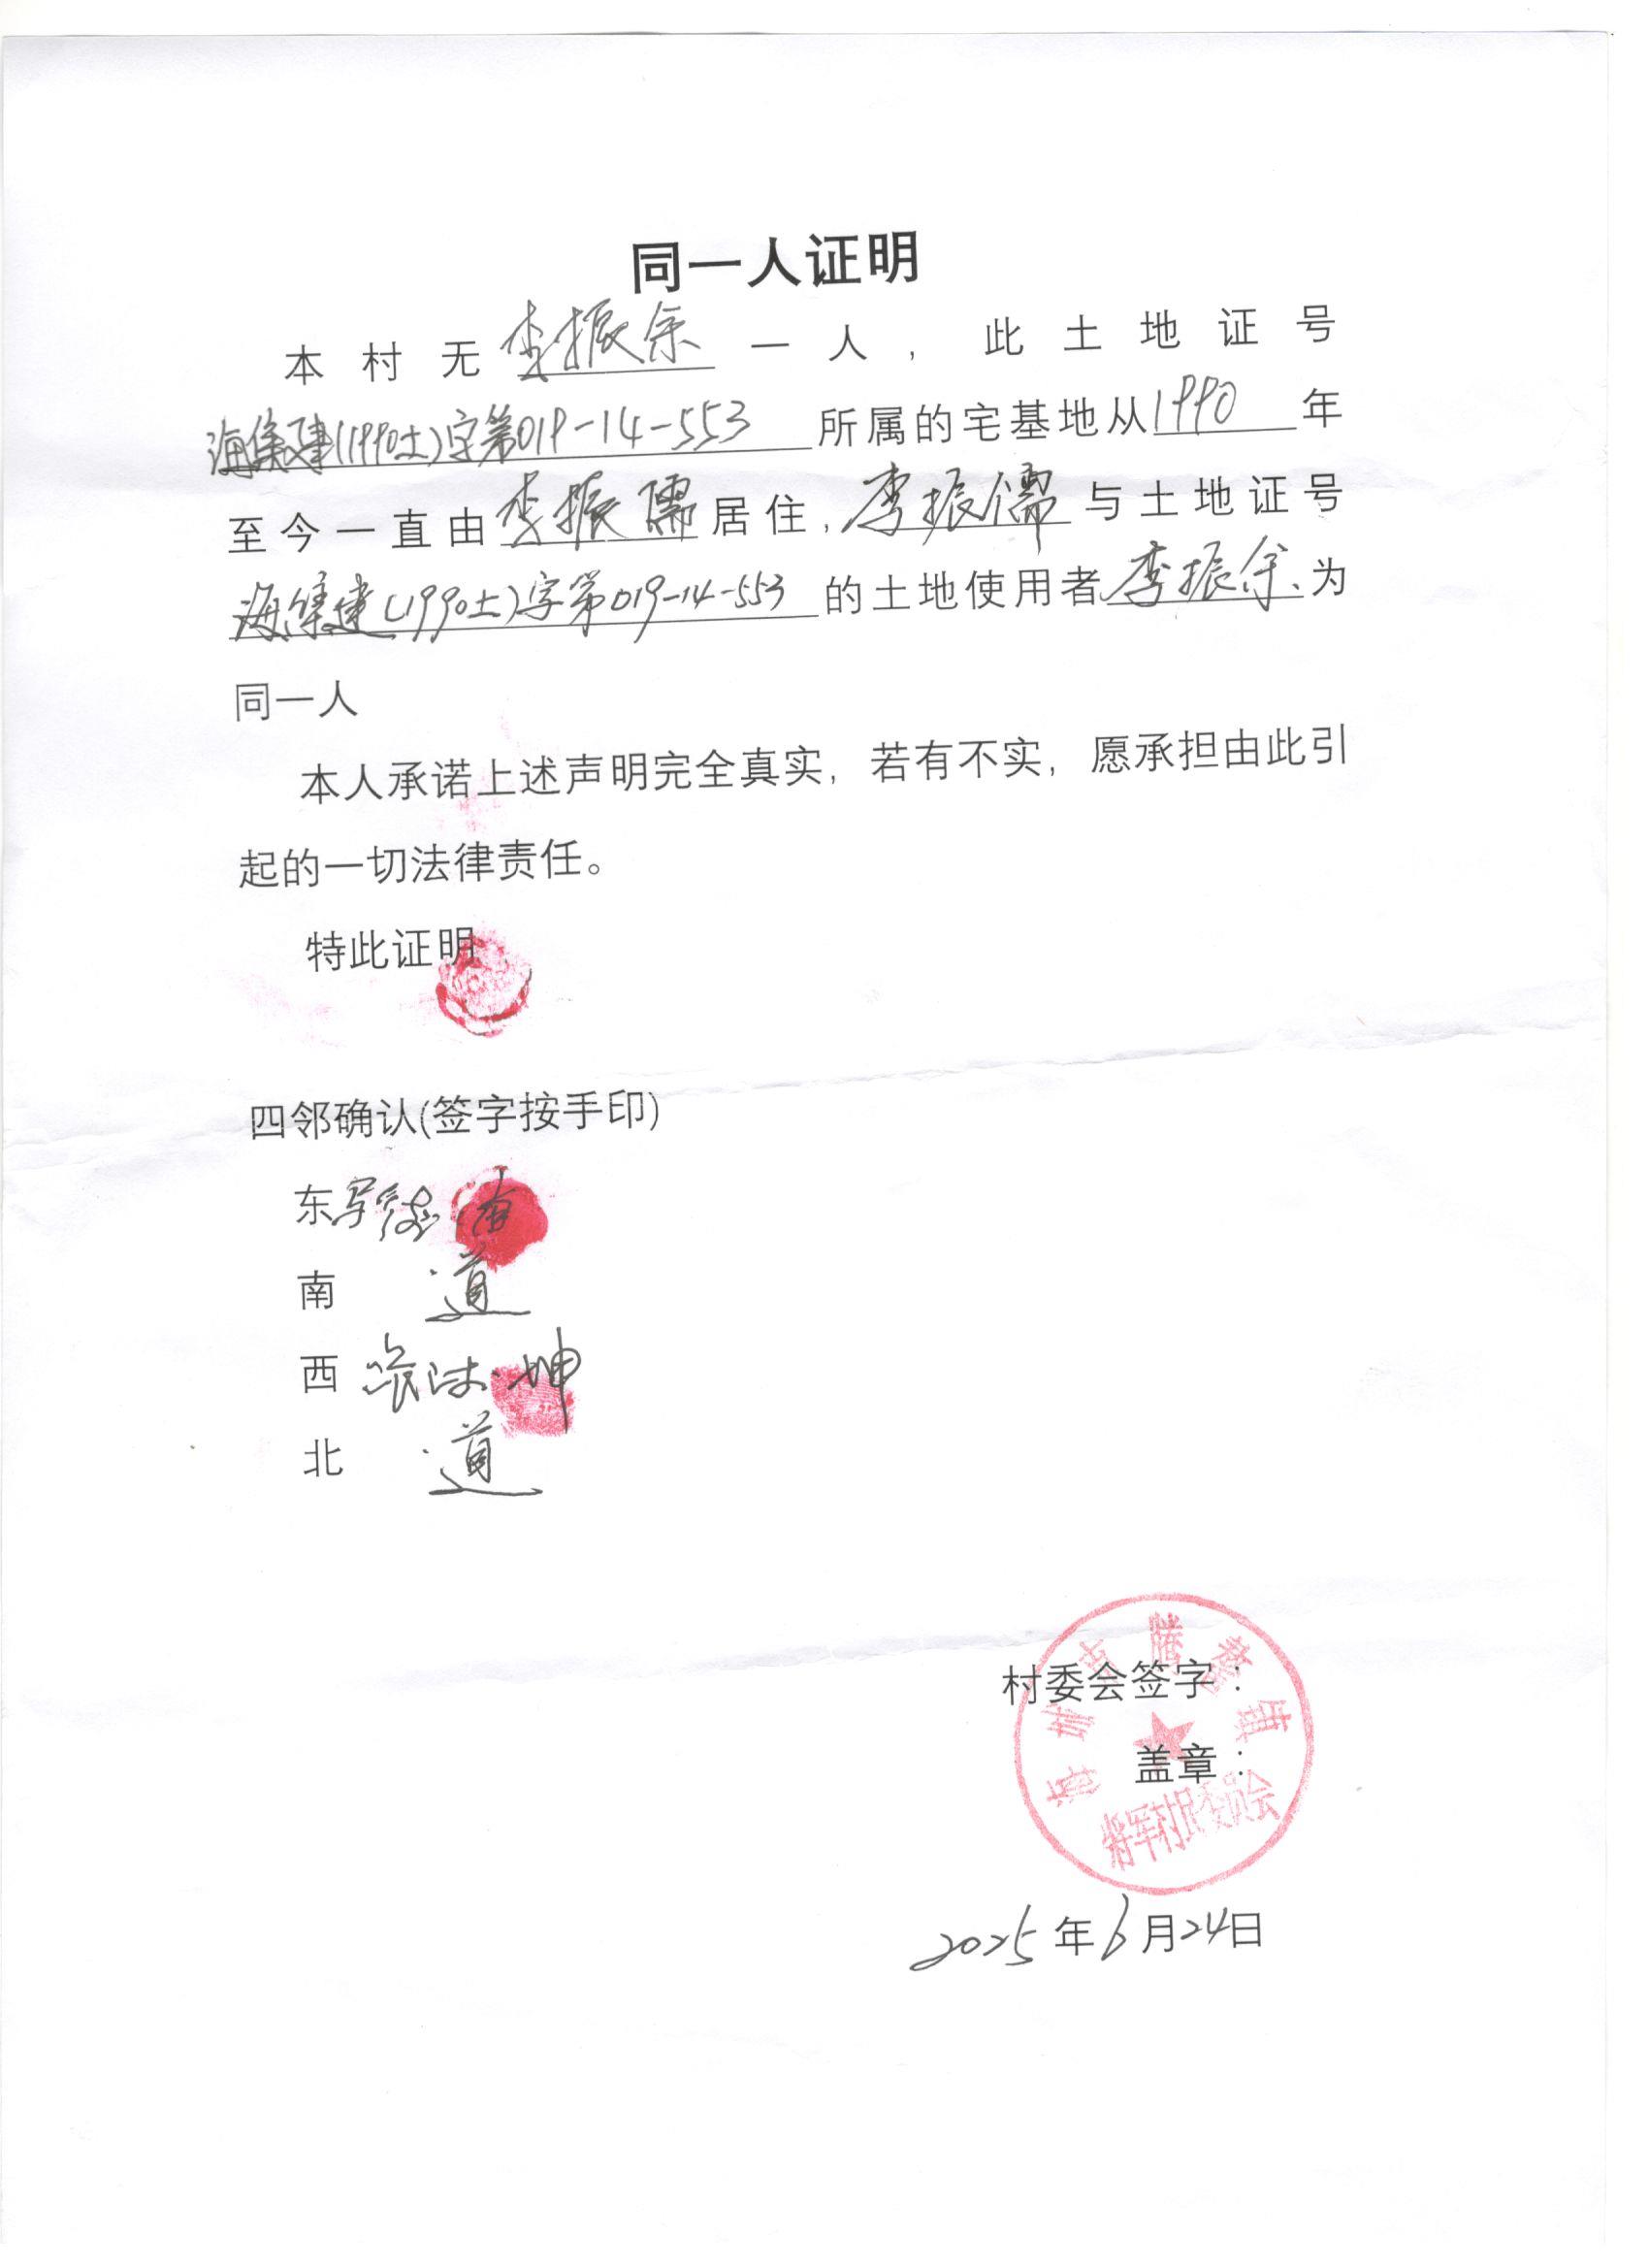 同一人证明
本村无李振余一人，此土地证号
海集建(1990土)字第019-14-553所属的宅基地从1990年
至今一直由李振儒居住，李振儒与土地证号
海集建(1990土)字第019-14-553的土地使用者李振余、为
同一人
本人承诺上述声明完全真实，若有不实，愿承担由此引
起的一切法律责任。
特此证明
四邻确认(签字按手印)
东
南 道
西 坤
北 道
村委会签字：
盖章：
海城市腾鳌镇
将军村村民委员会
2025年6月24日